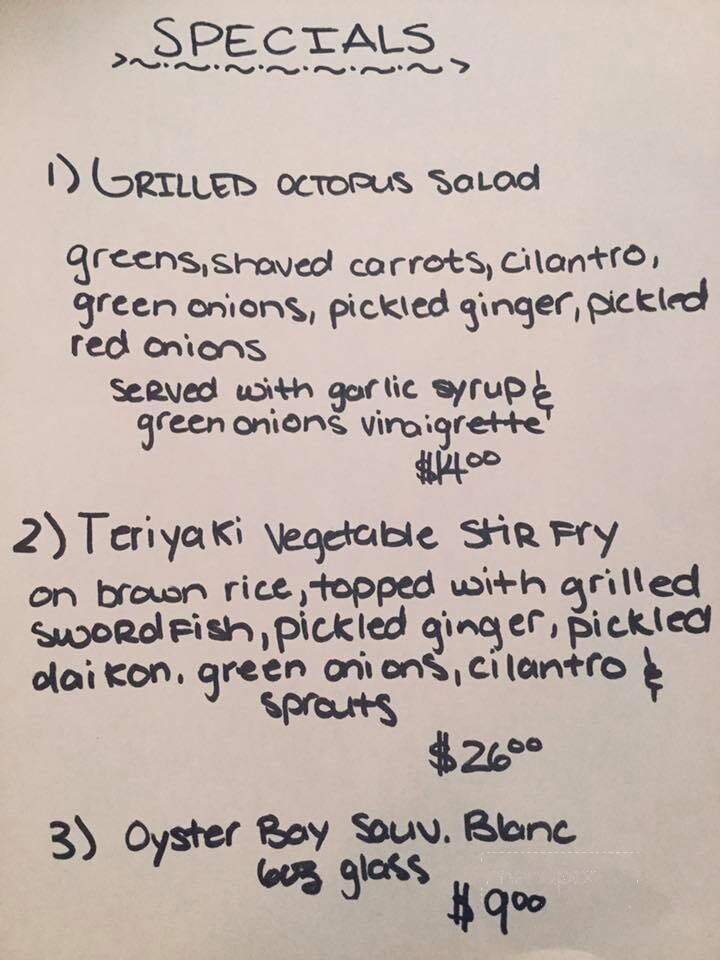 SPECIALS
1) GRILLED OCTOPUS SALAD
greens, shaved carrots, cilantro,
green onions, pickled ginger, pickled
red onions
SERVED with garlic syrup &
green onions vinaigrette
$14.00
2) Teriyaki Vegetable STIR FRY
on brown rice, topped with grilled
SWORDFISH, pickled ginger, pickled
daikon, green onions, cilantro &
sprouts
$26.00
3) Oyster Bay Sauv. Blanc
6oz glass
$9.00